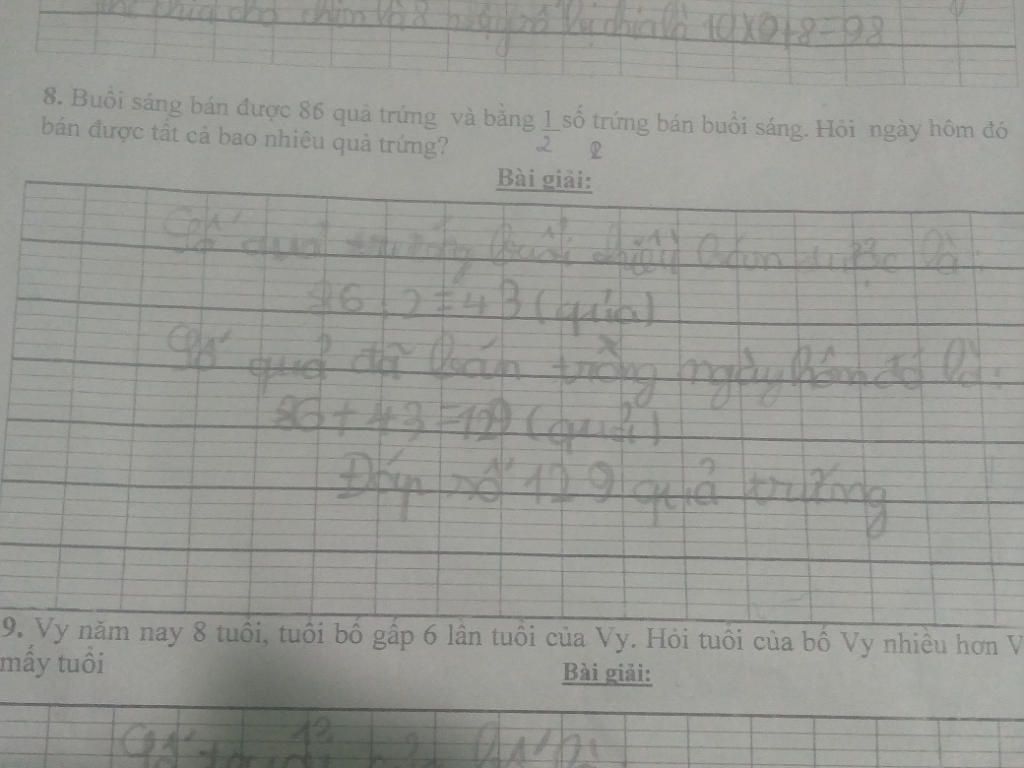 chia cho chín là 8 số bị chia là 10x9+8=98
8. Buổi sáng bán được 86 quả trứng và bằng 1 số trứng bán buổi sáng. Hỏi ngày hôm đó
2 2
bán được tất cả bao nhiêu quả trứng?
Bài giải:
Số quả trứng buổi chiều bán được là:
86 : 2 = 43 (quả)
Số quả đã bán trong ngày hôm đó là:
86 + 43 = 129 (quả)
Đáp số 129 quả trứng
9. Vy năm nay 8 tuổi, tuổi bố gấp 6 lần tuổi của Vy. Hỏi tuổi của bố Vy nhiều hơn V
mấy tuổi
Bài giải:
Số tuổi của bố là